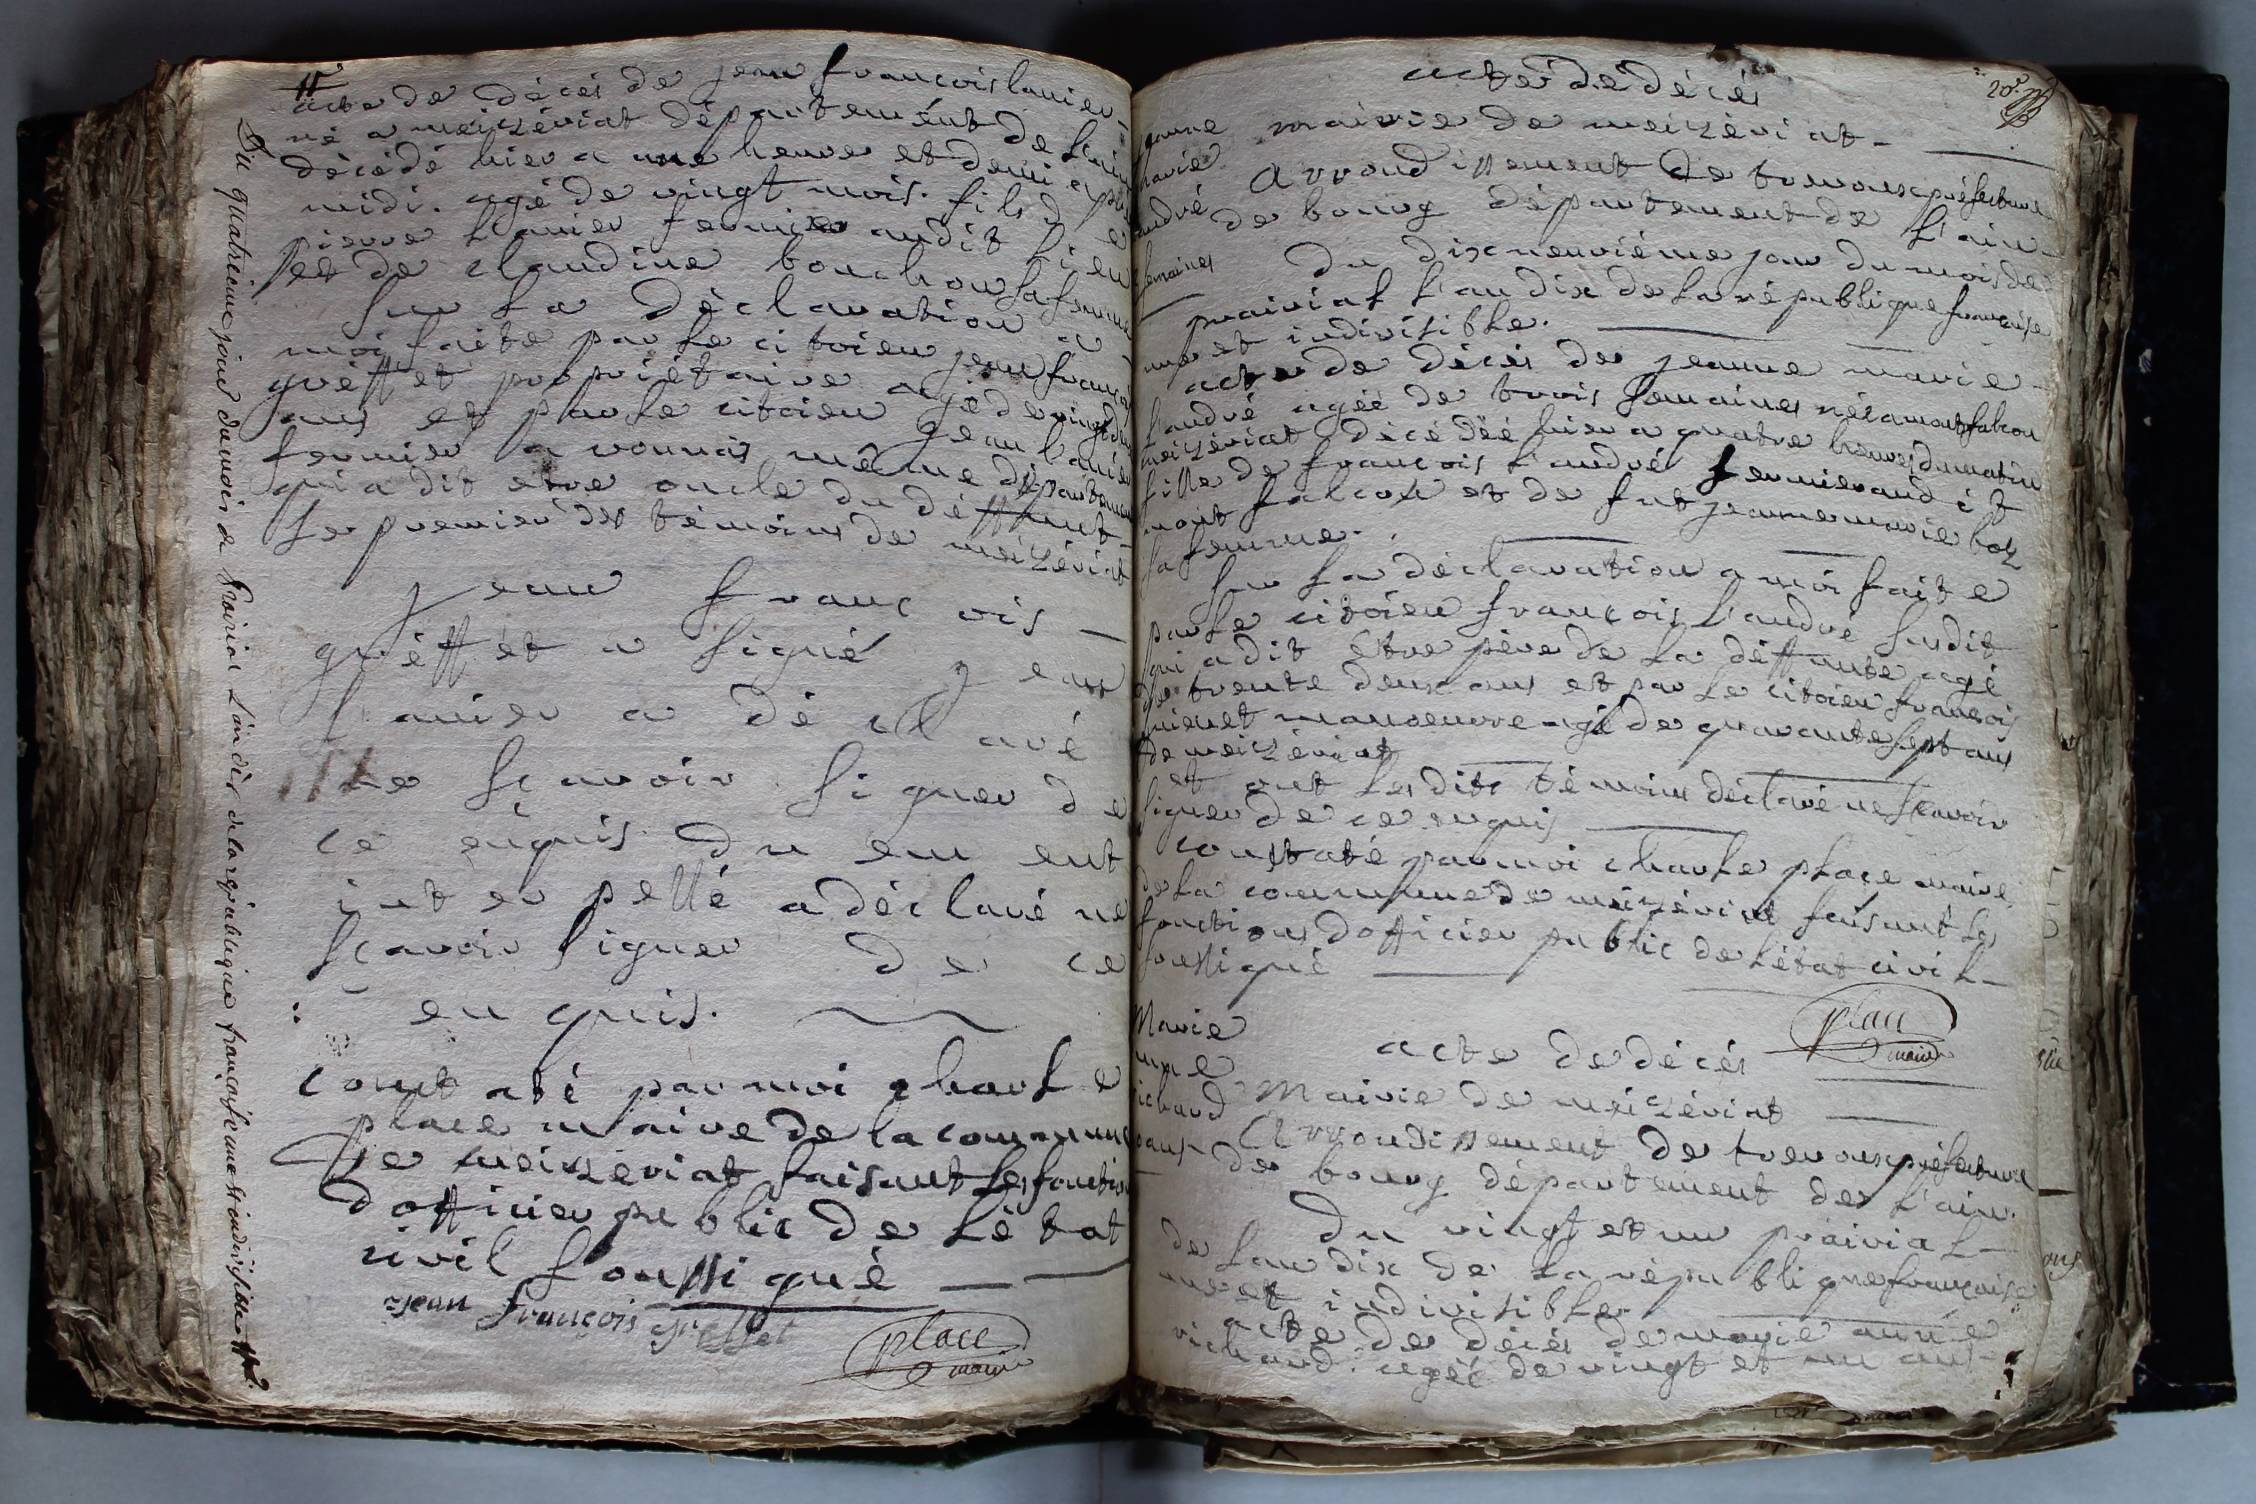 acte de décés de jean françois lanier
né a meizériat département de l'ain
décédé hier a une heure et demi aprés
midi. agé de vingt mois. fils de
pierre lanier fermier audit lieu
et de claudine bouchou sa femme
sur la déclaration a
moi faite par le citoien jean françois
gréffet propriétaire agé de vingt deux
ans et par le citoien jean lanier
fermier a vonnas même département
qui a dit etre oncle du déffunt
le premier des témoins de meizériat
jean françois
gréffet a signé jean
lanier a déclaré
ne sçavoir signer de
ce enquis. du
interpellé a déclaré ne
sçavoir signer de ce
enquis.
constaté par moi charle
place maire de la commune
de meizériat faisant les fonctions
dofficier public de létat
civil soussigné
jean françois greffet
place
maire
Du quatreieme jour du mois de Prairial L'an dix de la république française une et indivisible
20e
actes de décés
mairie de meizériat
Arrondissement de trevoux préfecture
de bourg département de l'ain
du dix neuviéme jour du mois de
prairial l'an dix de la république française
une et indivisible.
jeanne
marie
andré
semaines
acte de décés de jeanne marie
l'andré agée de trois semaines née a montfalcon
meizériat décédéé hier a quatre heures du matin
fille de françois l'andré fermier audit
mont falcon et de fut jeanne marie boz
sa femme.
sur la déclaration a moi faite
par le citoien françois l'andré susdit
qui a dit être pére de la déffunte agé
de trente deux ans et par le citoien françois
manoeuvre agé de quarante sept ans
de meizériat
et ont les dits témoins déclaré ne scavoir
signer de ce enquis
constaté par moi charle place maire
de la commune de meizériat faisant les
fonctions dofficier public de l'état civil
soussigné
place
maire
Marie
anne
richard
ans
acte de décés
Mairie de meizériat
Arrondissement de trevoux préfecture
de bourg département de l'ain.
du vingt et un prairial
de lan dix de la république française
une et indivisible.
acte de décés de marie anne
richard. agéé de vingt et un ans